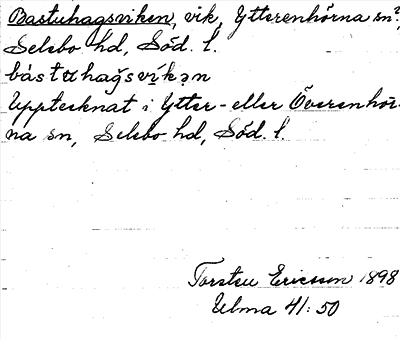 Bastuhagsviken, vik, Ytterenhörna sn?,
Selebo hd, Söd. l.
bástuhağsvík̥ən
Upptecknat i Ytter- eller Överenhör-
na sn, Selebo hd, Söd. l.
Torsten Ericsson 1898
Ulma 41:50